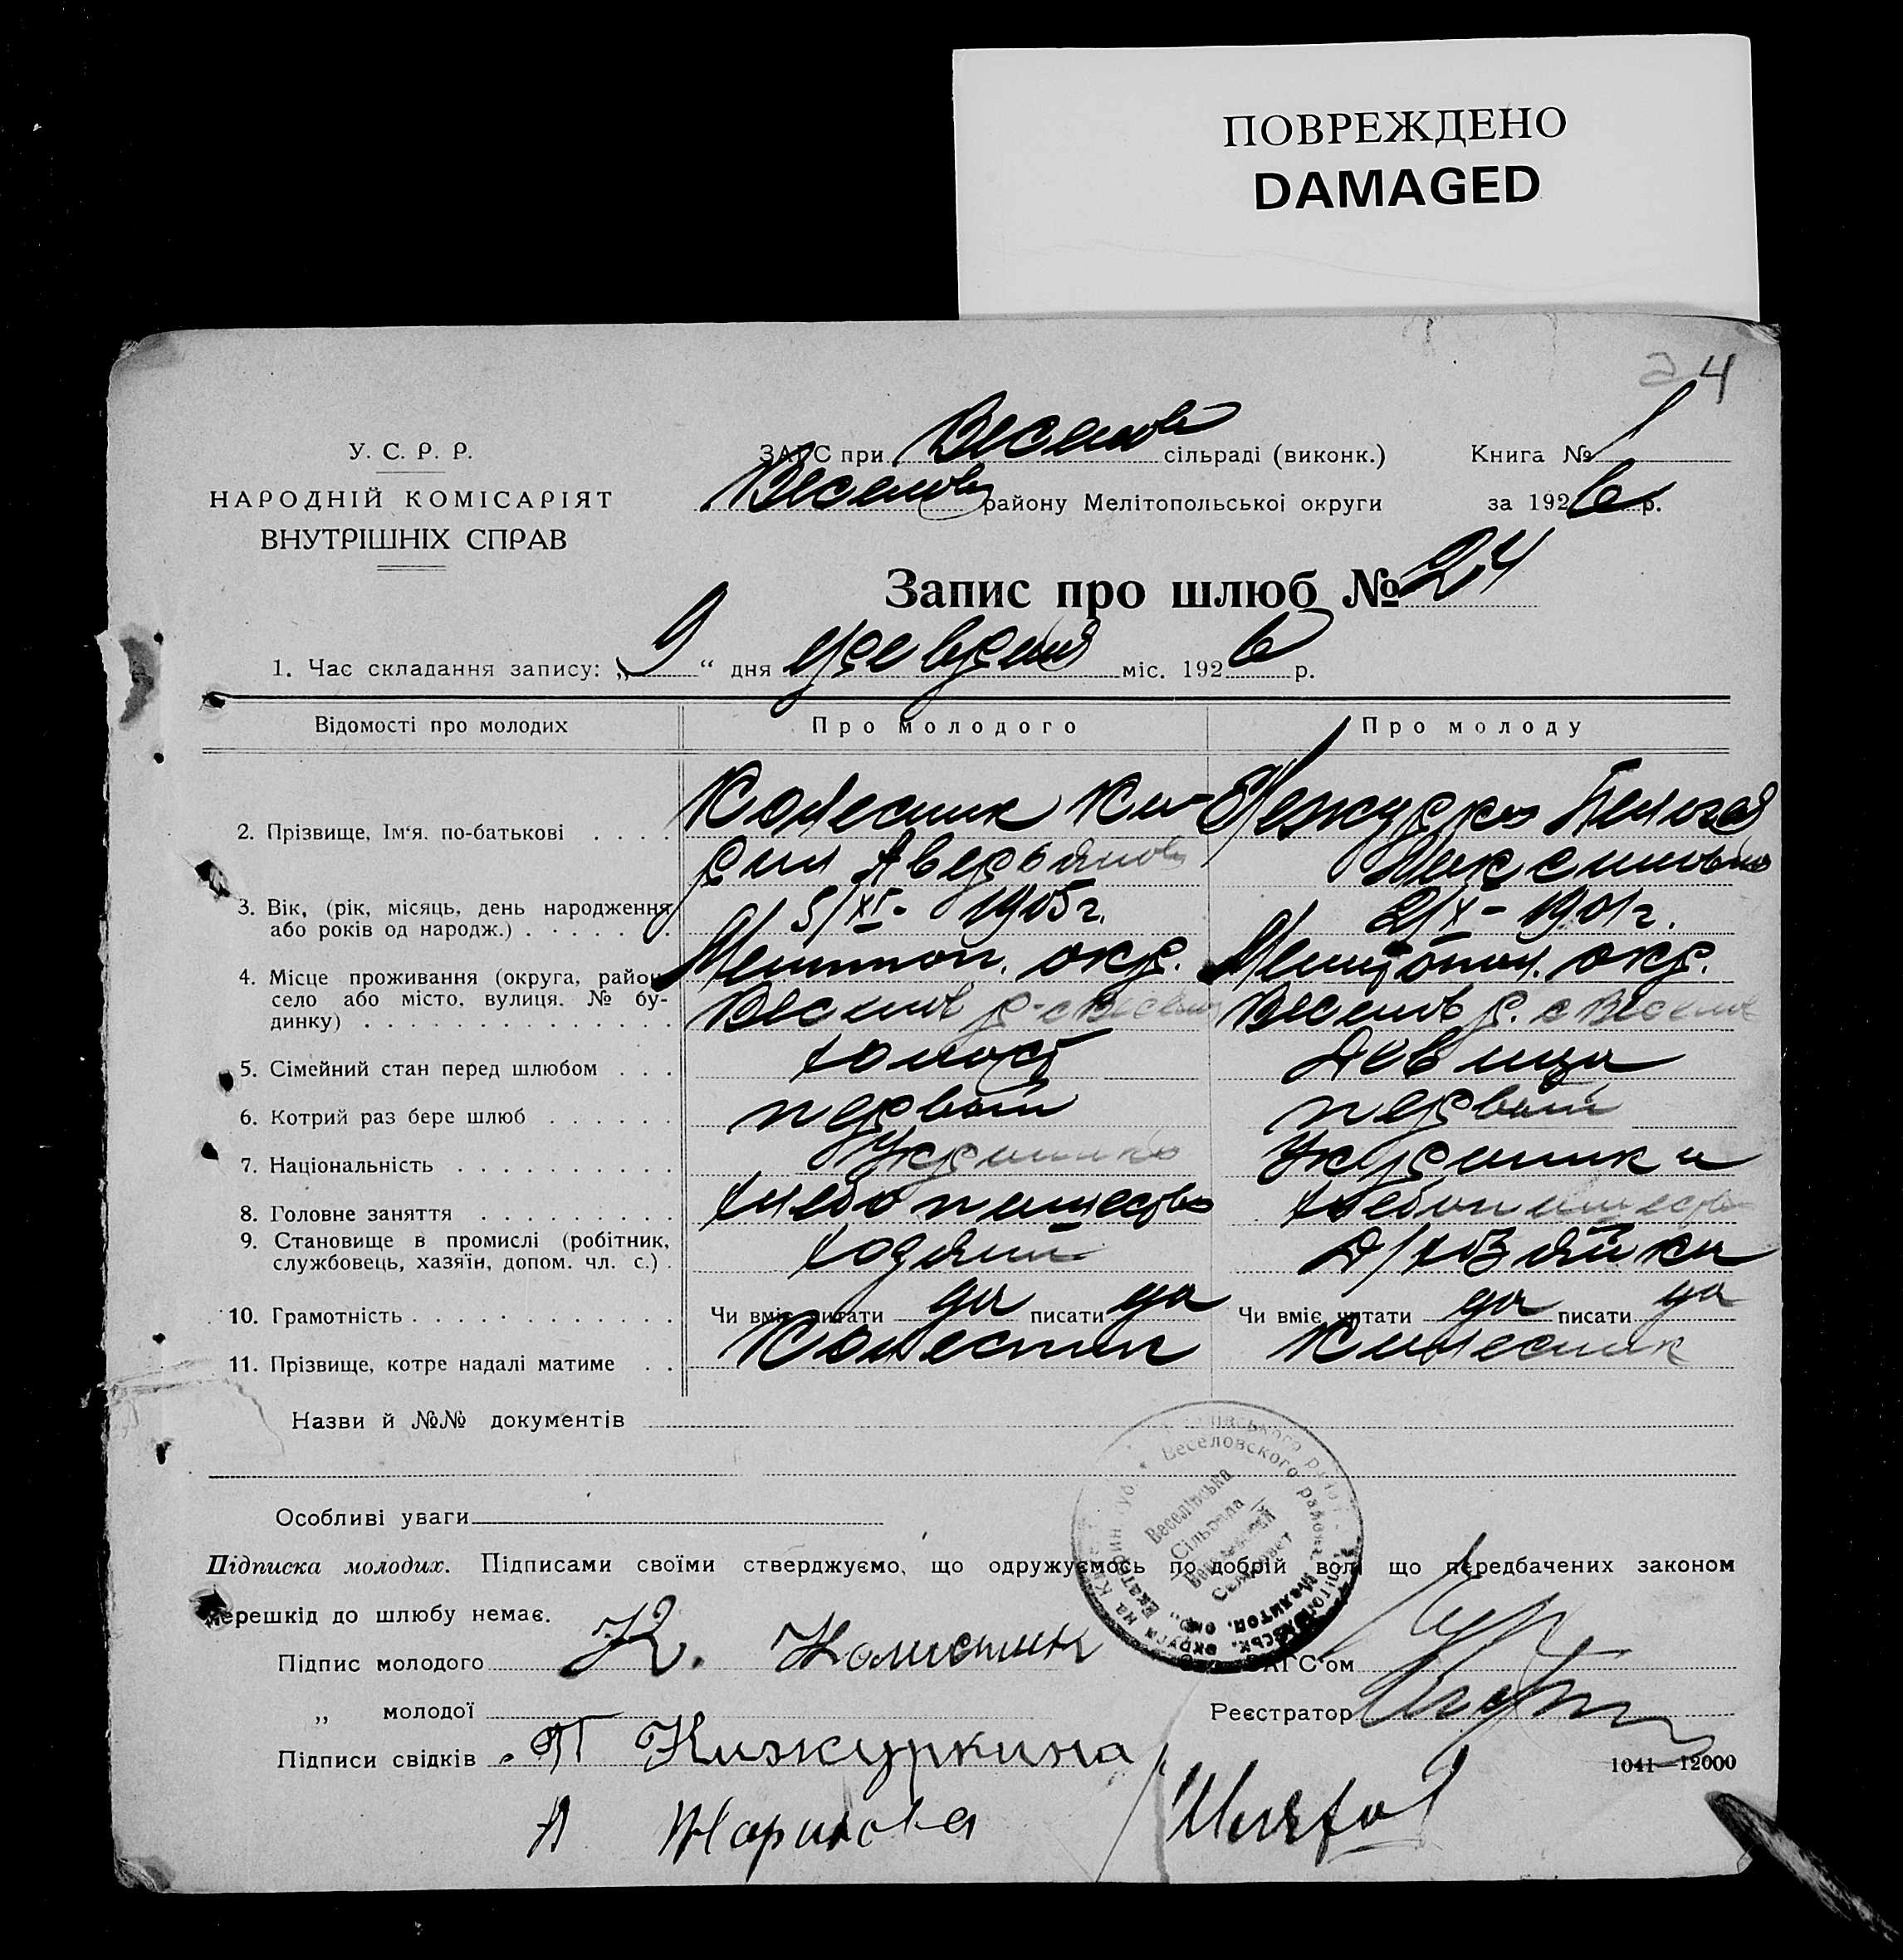 ПОВРЕЖДЕНО
DAMAGED
24
У. С. Р. Р.
НАРОДНІЙ КОМІСАРІЯТ
ВНУТРІШНІХ СПРАВ
ЗАГС при Веселов сільраді (виконк.) Книга № 1
Веселов району Мелітопольської округи за 1926 р.
Запис про шлюб № 24
1. Час складання запису: „ 9 “ дня февраля міс. 1926 р.
Відомості про молодих Про молодого Про молоду
2. Прізвище, Ім‘я. по-батькові . . . . Колесник Ки- Пелагея
рил Аверьянов Максимовна
3. Вік, (рік, місяць, день народження 5/XI- 1905 г. 2/X- 1901 г.
або років од народж.) . . . . . . .
4. Місце проживання (округа, район, Мелитоп. окр. Мелитопол. окр.
село або місто, вулиця. № бу- Веселов р. с Весел Веселов р. с Веселов
динку) . . . . . . . . . . . . . .
5. Сімейний стан перед шлюбом . . . холост девица
6. Котрий раз бере шлюб . . . . . . первый первый
7. Національність . . . . . . . . . . Украинка
8. Головне заняття . . . . . . . . . хлебопашество хлебопашество
9. Становище в промислі (робітник, хозяин д/хозяйка
службовець, хазяїн, допом. чл. с.) .
10. Грамотність . . . . . . . . . . . . Чи вміє читати да писати да Чи вміє читати да писати да
11. Прізвище, котре надалі матиме . . Колесник Колесник
Назви й №№ документів
Веселовского района
Веселівська
Сільрада
Веселовский
Сельсовет
Особливі уваги
Підписка молодих. Підписами своїми стверджуємо, що одружуємось по добрій волі що передбачених законом
перешкід до шлюбу немає.
Підпис молодого К. Колистик ЗАГС‘ом
„ молодої Реєстратор
Підписи свідків П
1041—12000
А